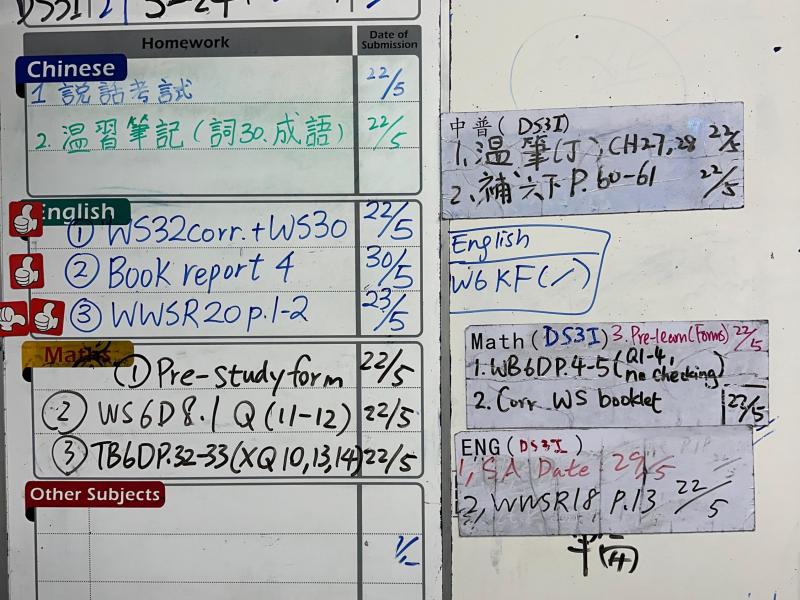 Homework
Date of Submission
Chinese
1 說話考試 22/5
2. 温習筆記(詞30.成語) 22/5
English
① WS32corr.+WS30 22/5
② Book report 4 30/5
③ WWSR20 p.1-2 23/5
Maths
① Pre-study form 22/5
② WS6D8.1 Q(11-12) 22/5
③ TB6DP.32-33(XQ10,13,14) 22/5
Other Subjects
中普(DS3I)
1、温筆(丁)、CH27,28 22/5
2、補六下P.60-61 22/5
English
W6 KF(/)
Math(DS3I) 3.Pre-learn(Forms) 22/5
1.WB6DP.4-5(Q1-4, no checking)
2. Corr WS booklet 23/5
ENG(DS3I)
1, SA Date 29/5
2, WWSR18 P.13 22/5